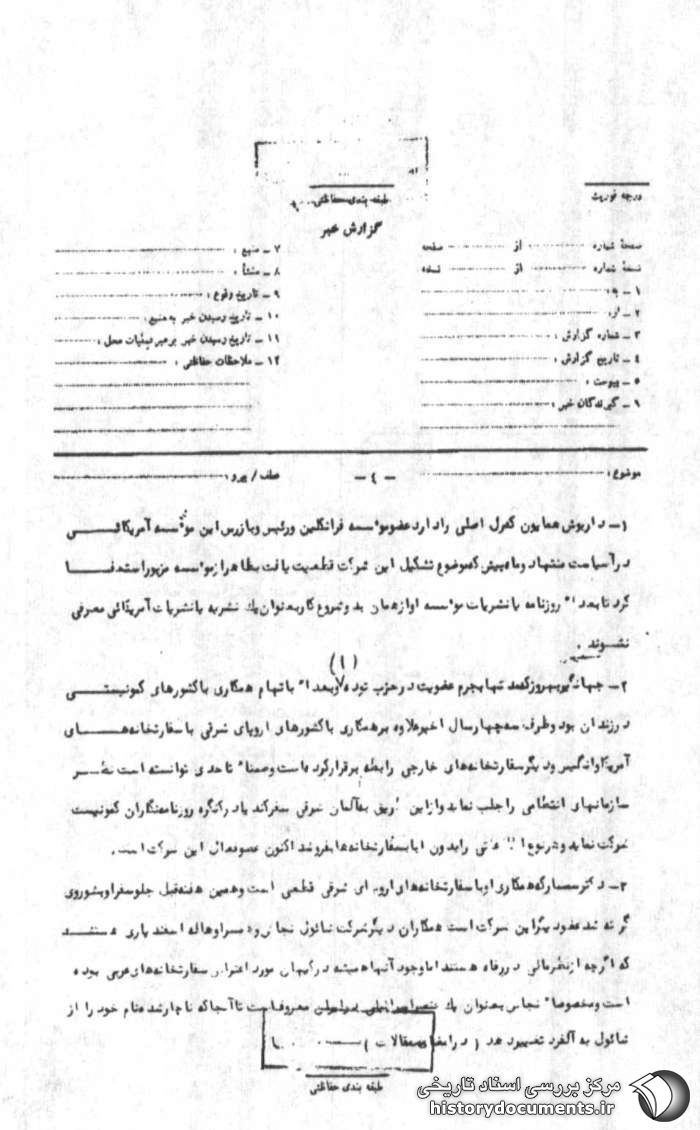 طبقه بندی حفاظتی
درجه فوریت
گزارش خبر
صفحهٔ شماره از صفحه
نسخهٔ شماره از نسخه
۱ – به :
۲ – از :
۳ – شماره گزارش :
۴ – تاریخ گزارش :
۵ – پیوست :
۶ – گیرندگان خبر :
۷ – منبع :
۸ – منشأ :
۹ – تاریخ وقوع :
۱۰ – تاریخ رسیدن خبر به منبع :
۱۱ – تاریخ رسیدن خبر برهبر عملیات محل :
۱۲ – ملاحظات حفاظتی :
موضوع : – ٤ – عطف / پیرو :
۱– داریوش همایون کنترل اصلی را دارد عضو موسسه فرانکلین ورئیس وبازرس این موسسه آمریکائی
در آسیاست منتها دوماه پیش که موضوع تشکیل این شرکت قطعیت یافت بظاهر از موسسه مزبور استعفا
کرد تا بعداً روزنامه یا نشریات موسسه او از همان بدو شروع کار بعنوان یک نشریه یا نشریات آمریکائی معرفی
نشوند .
(۱)
۲– جهانگیر بهروز که نه تنها بجرم عضویت در حزب توده وبعداً باتهام همکاری با کشورهای کمونیستی
در زندان بود وظرف سه چهار سال اخیر علاوه بر همکاری با کشورهای اروپای شرقی با سفارتخانه های
آمریکا وانگلیس ودیگر سفارتخانه های خارجی رابطه برقرار کرده است وضمناً تا حدی توانسته است نظر
سازمانهای انتظامی را جلب نماید و از این طریق به آلمان شرقی سفر کند یا در کنگره روزنامه نگاران کمونیست
شرکت نماید وهر نوع را بدون ابا بسفارتخانه ها بفروشد اکنون عضو فعال این شرکت است .
۳– دکتر مبارکه همکاری او با سفارتخانه های اروپای شرقی قطعی است وهمین هفته قبل جلو سفر او بشوروی
گرفته شد عضو دیگر این شرکت است همکاران دیگر شرکت شائول نجاس و هاله اسفندیاری هستند
که اگرچه از نظر مالی در رفاه هستند اما وجود آنها همیشه در کیهان مورد اعتراض سفارتخانه های عربی بوده
است ومخصوصاً نجاس بعنوان یک معروف است تا آنجا که ناچار شد نام خود را از
شائول به آلفرد تغییر دهد ( در امضای مقالات )
طبقه بندی حفاظتی
مرکز بررسی اسناد تاریخی
historydocuments.ir